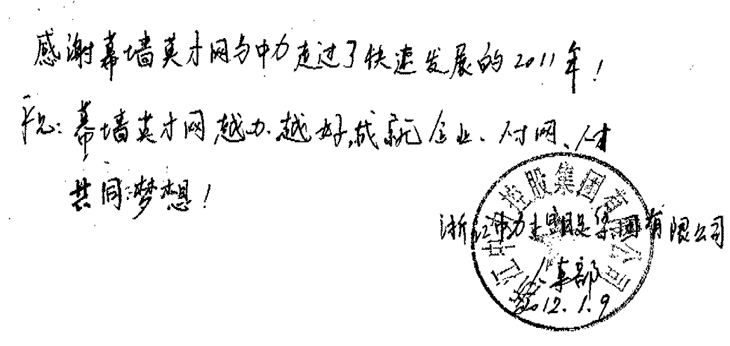 感谢幕墙英才网与中力走过了快速发展的2011年！
祝：幕墙英才网越办越好，成就企业、人才网、人才
共同梦想！
浙江中力控股集团有限公司
人事部
2012.1.9